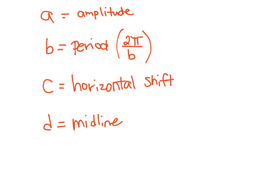 a = amplitude
b = period (2π/b)
c = horizontal shift
d = midline